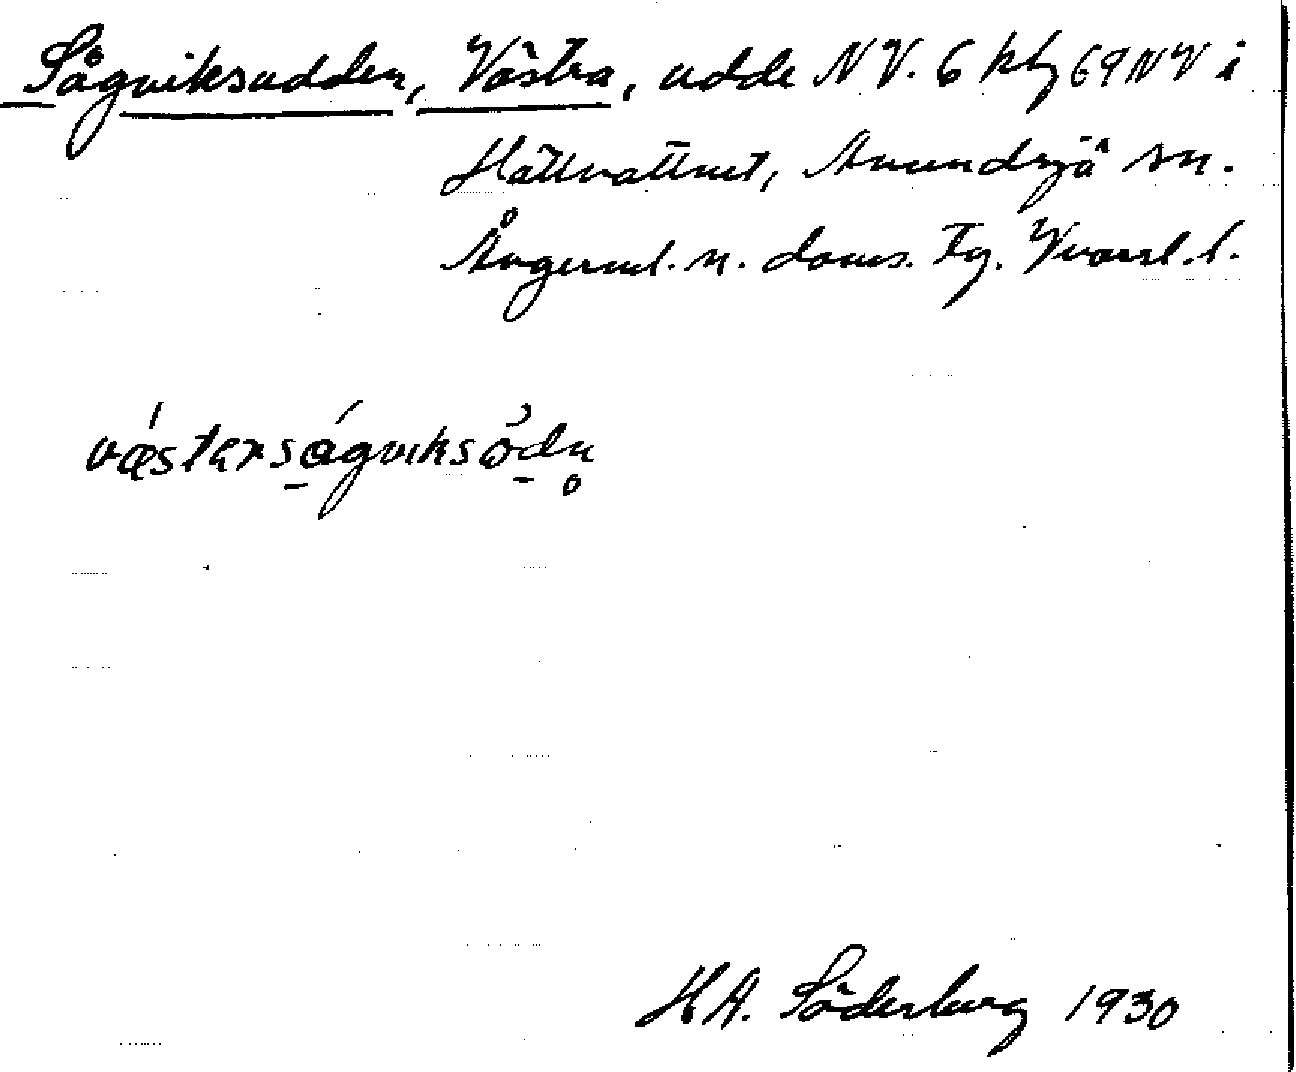 Sågviksudden, Västra, udde NV. 6 kbg 69 NV i
Hällvattnet, Anundsjö sn.
Ångerml. n. doms. Tg. Vnorrl. l.
västərságviksödn̥
HA. Söderberg 1930